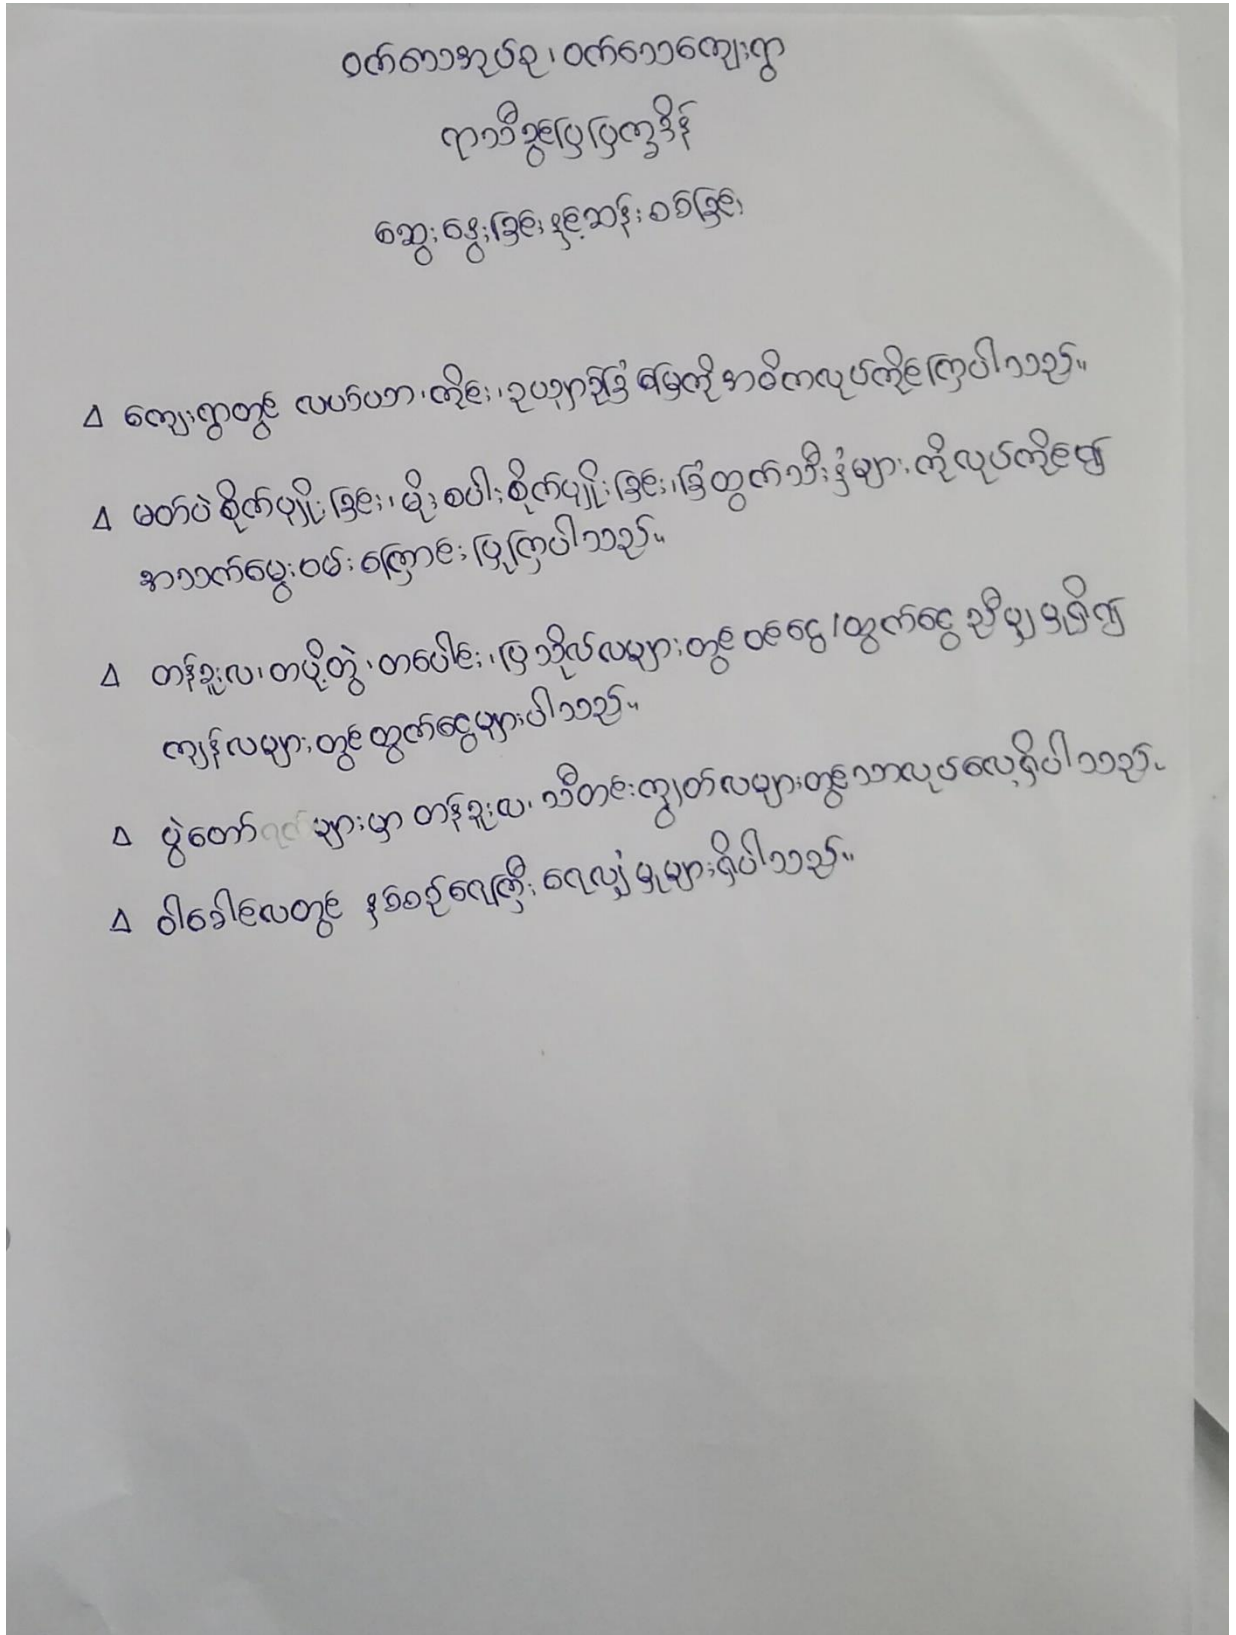 ဝက်တောအုပ်စု၊ ဝက်သောကျေးရွာ
ရာသီခွင်ပြပြက္ခဒိန်
ဆွေးနွေးခြင်းနှင့်ဆန်းစစ်ခြင်း
∆ ကျေးရွာတွင် လယ်ယာ၊ ကိုင်း၊ ဥယျာဉ်ခြံမြေကို အဓိကလုပ်ကိုင်ကြပါသည်။
∆ မတ်ပဲစိုက်ပျိုးခြင်း၊ မိုးစပါးစိုက်ပျိုးခြင်း၊ ခြံထွက်သီးနှံများကိုလုပ်ကိုင်၍
အသက်မွေးဝမ်းကြောင်းပြုကြပါသည်။
∆ တန်ခူးလ၊ တပို့တွဲ၊ တပေါင်း၊ ပြာသိုလ်လများတွင် ဝင်ငွေ/ထွက်ငွေ ညီမျှမှုရှိ၍
ကျန်လများတွင်ထွက်ငွေများပါသည်။
∆ ပွဲတော်ရက်များမှာ တန်ခူးလ၊ သီတင်းကျွတ်လများတွင်သာလုပ်လေ့ရှိပါသည်။
∆ ဝါခေါင်လတွင် နှစ်စဉ်ရေကြီး ရေလျှံမှုများရှိပါသည်။